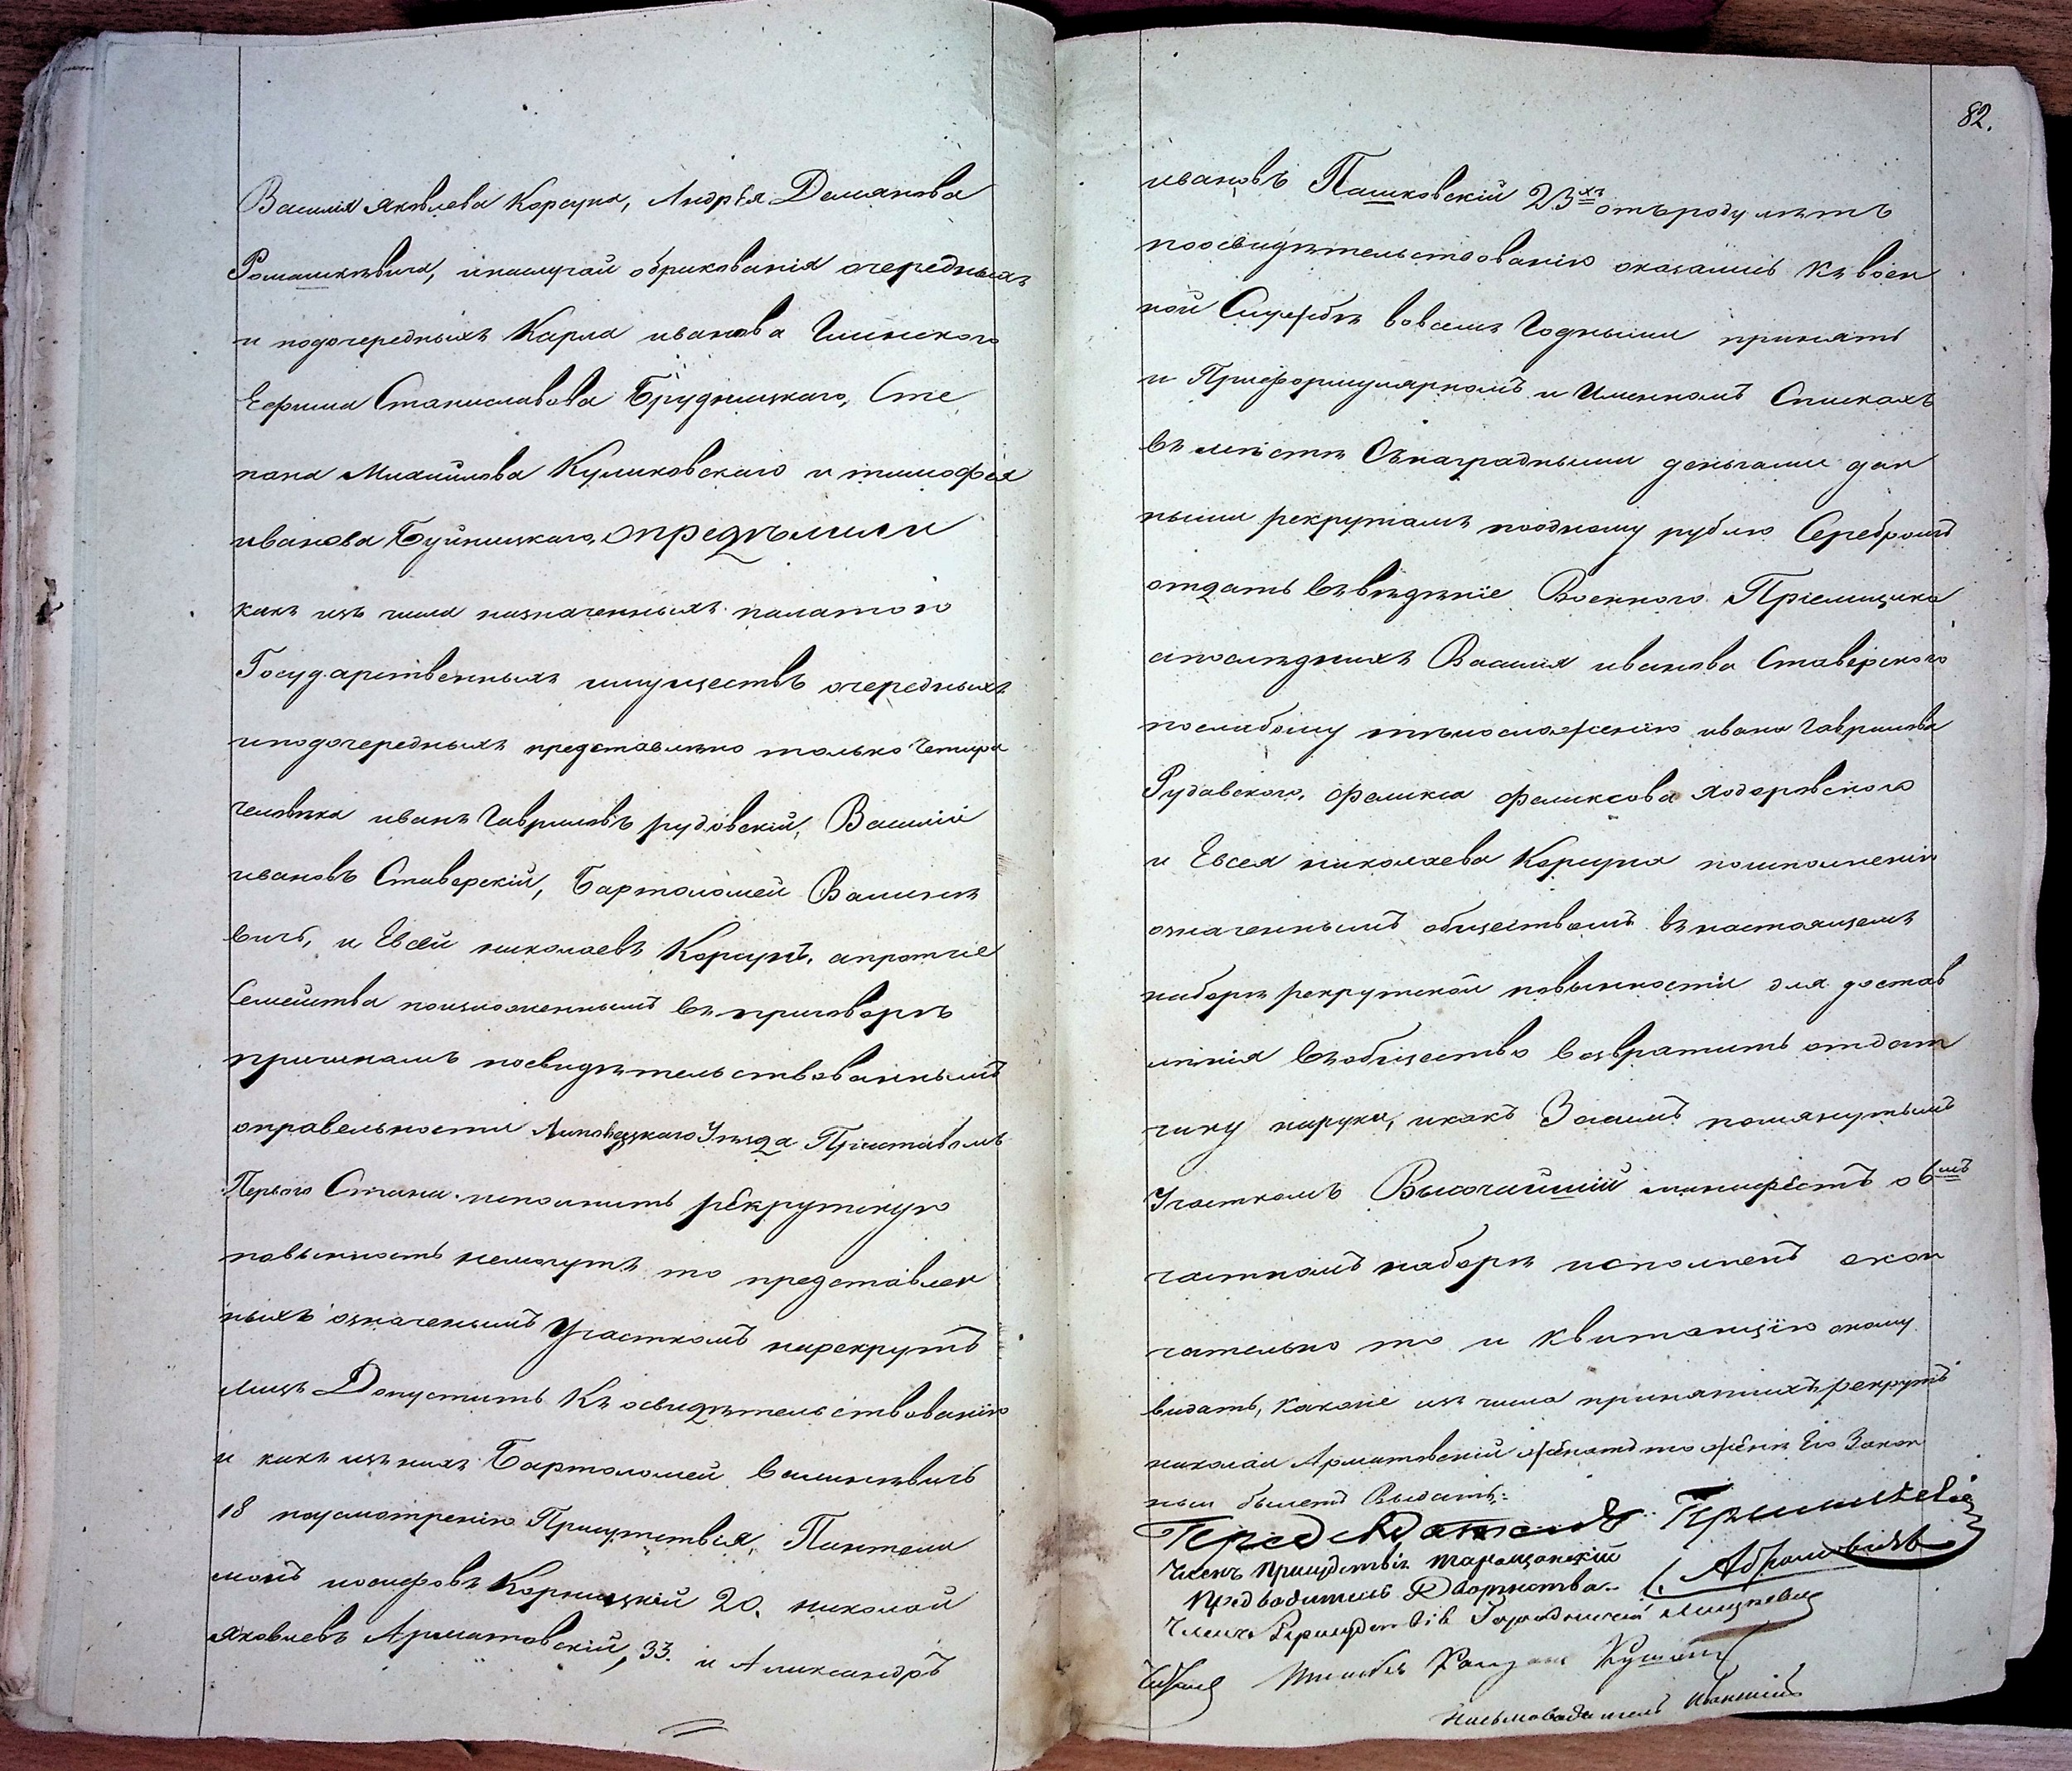 Василия Яковлева Корсуна, Андрѣя Демянова
Ромашкѣвича, инаслучай обракованія очередныхъ
и подочередныхъ Карла иванова Глинского
Ефима Станиславова Брудницкаго, Сте
пана Михайлова Куликовскаго и тимофѣя
иванова Буйницкаго, опредѣлили
какъ изъ числа назначенныхъ палатою
Государственныхъ имуществъ очередныхъ
иподочередныхъ представлено только четыри
человѣка иванъ Гавриловъ рудовскій, Василій
ивановъ Ставерскій, Бартоломей Валинке
вичь, и Евсей николаевъ Корсунъ, апрочие
Семейства поизложеннымъ въ приговорѣ
причинамъ посвидѣтельствованнымъ
оправельности Липовецкаго Уѣзда Приставомъ
Перваго Стана исполнить рекрутскую
повынность немогутъ то представлен
ныхъ означенымъ Участкомъ нарекрутъ
лицъ Допустить Къ освидѣтельствованію
и какъ изъ нихъ Бартоломей Валинкѣвичь
18 поусмотрѣнію Присутствія, Пантели
монъ иосифовъ Корницкій 20. николай
Яковлевъ Арматовскій, 33. и Александръ
82.
ивановъ Пашковскій 23хъ отъ роду лѣтъ
поосвидѣтельствованію оказались Къ воен
ной Службѣ вовсемъ Годными принять
и Приформулярномъ и Именномъ Спискахъ
въ мѣстѣ Снаградными деньгами дан
ными рекрутамъ поодному рублю Серебромъ
отдать въ вѣдѣніе Военного Пріемщика
апослѣднихъ Василія иванова Ставерского
послабому тѣлосложенію ивана Гаврилова
Рудавского, феликса феликсова Ходоровского
и Евсея николаева Корсуна поисполненіи
означеннымъ обществомъ въ настоящемъ
наборѣ рекрутской повынности для достав
лѣнія въ общество возвратить отдат
чику наруки, икакъ Засимъ помянутымъ
Участкомъ Высочайшій манифестъ о 6мъ
частномъ наборѣ исполненъ окон
чательно то и Квитанцію оному
видать, Какоже изъ числа принятихъ рекрутъ
николай Арматовскій женатъ то женѣ Его Закон
ный билетъ Выдать:
Председатель
Членъ Присудствія Таращанскій
Предводитель Дворянства. Абрамовичъ
Членъ Присудствія Городничій
Письмоводитель